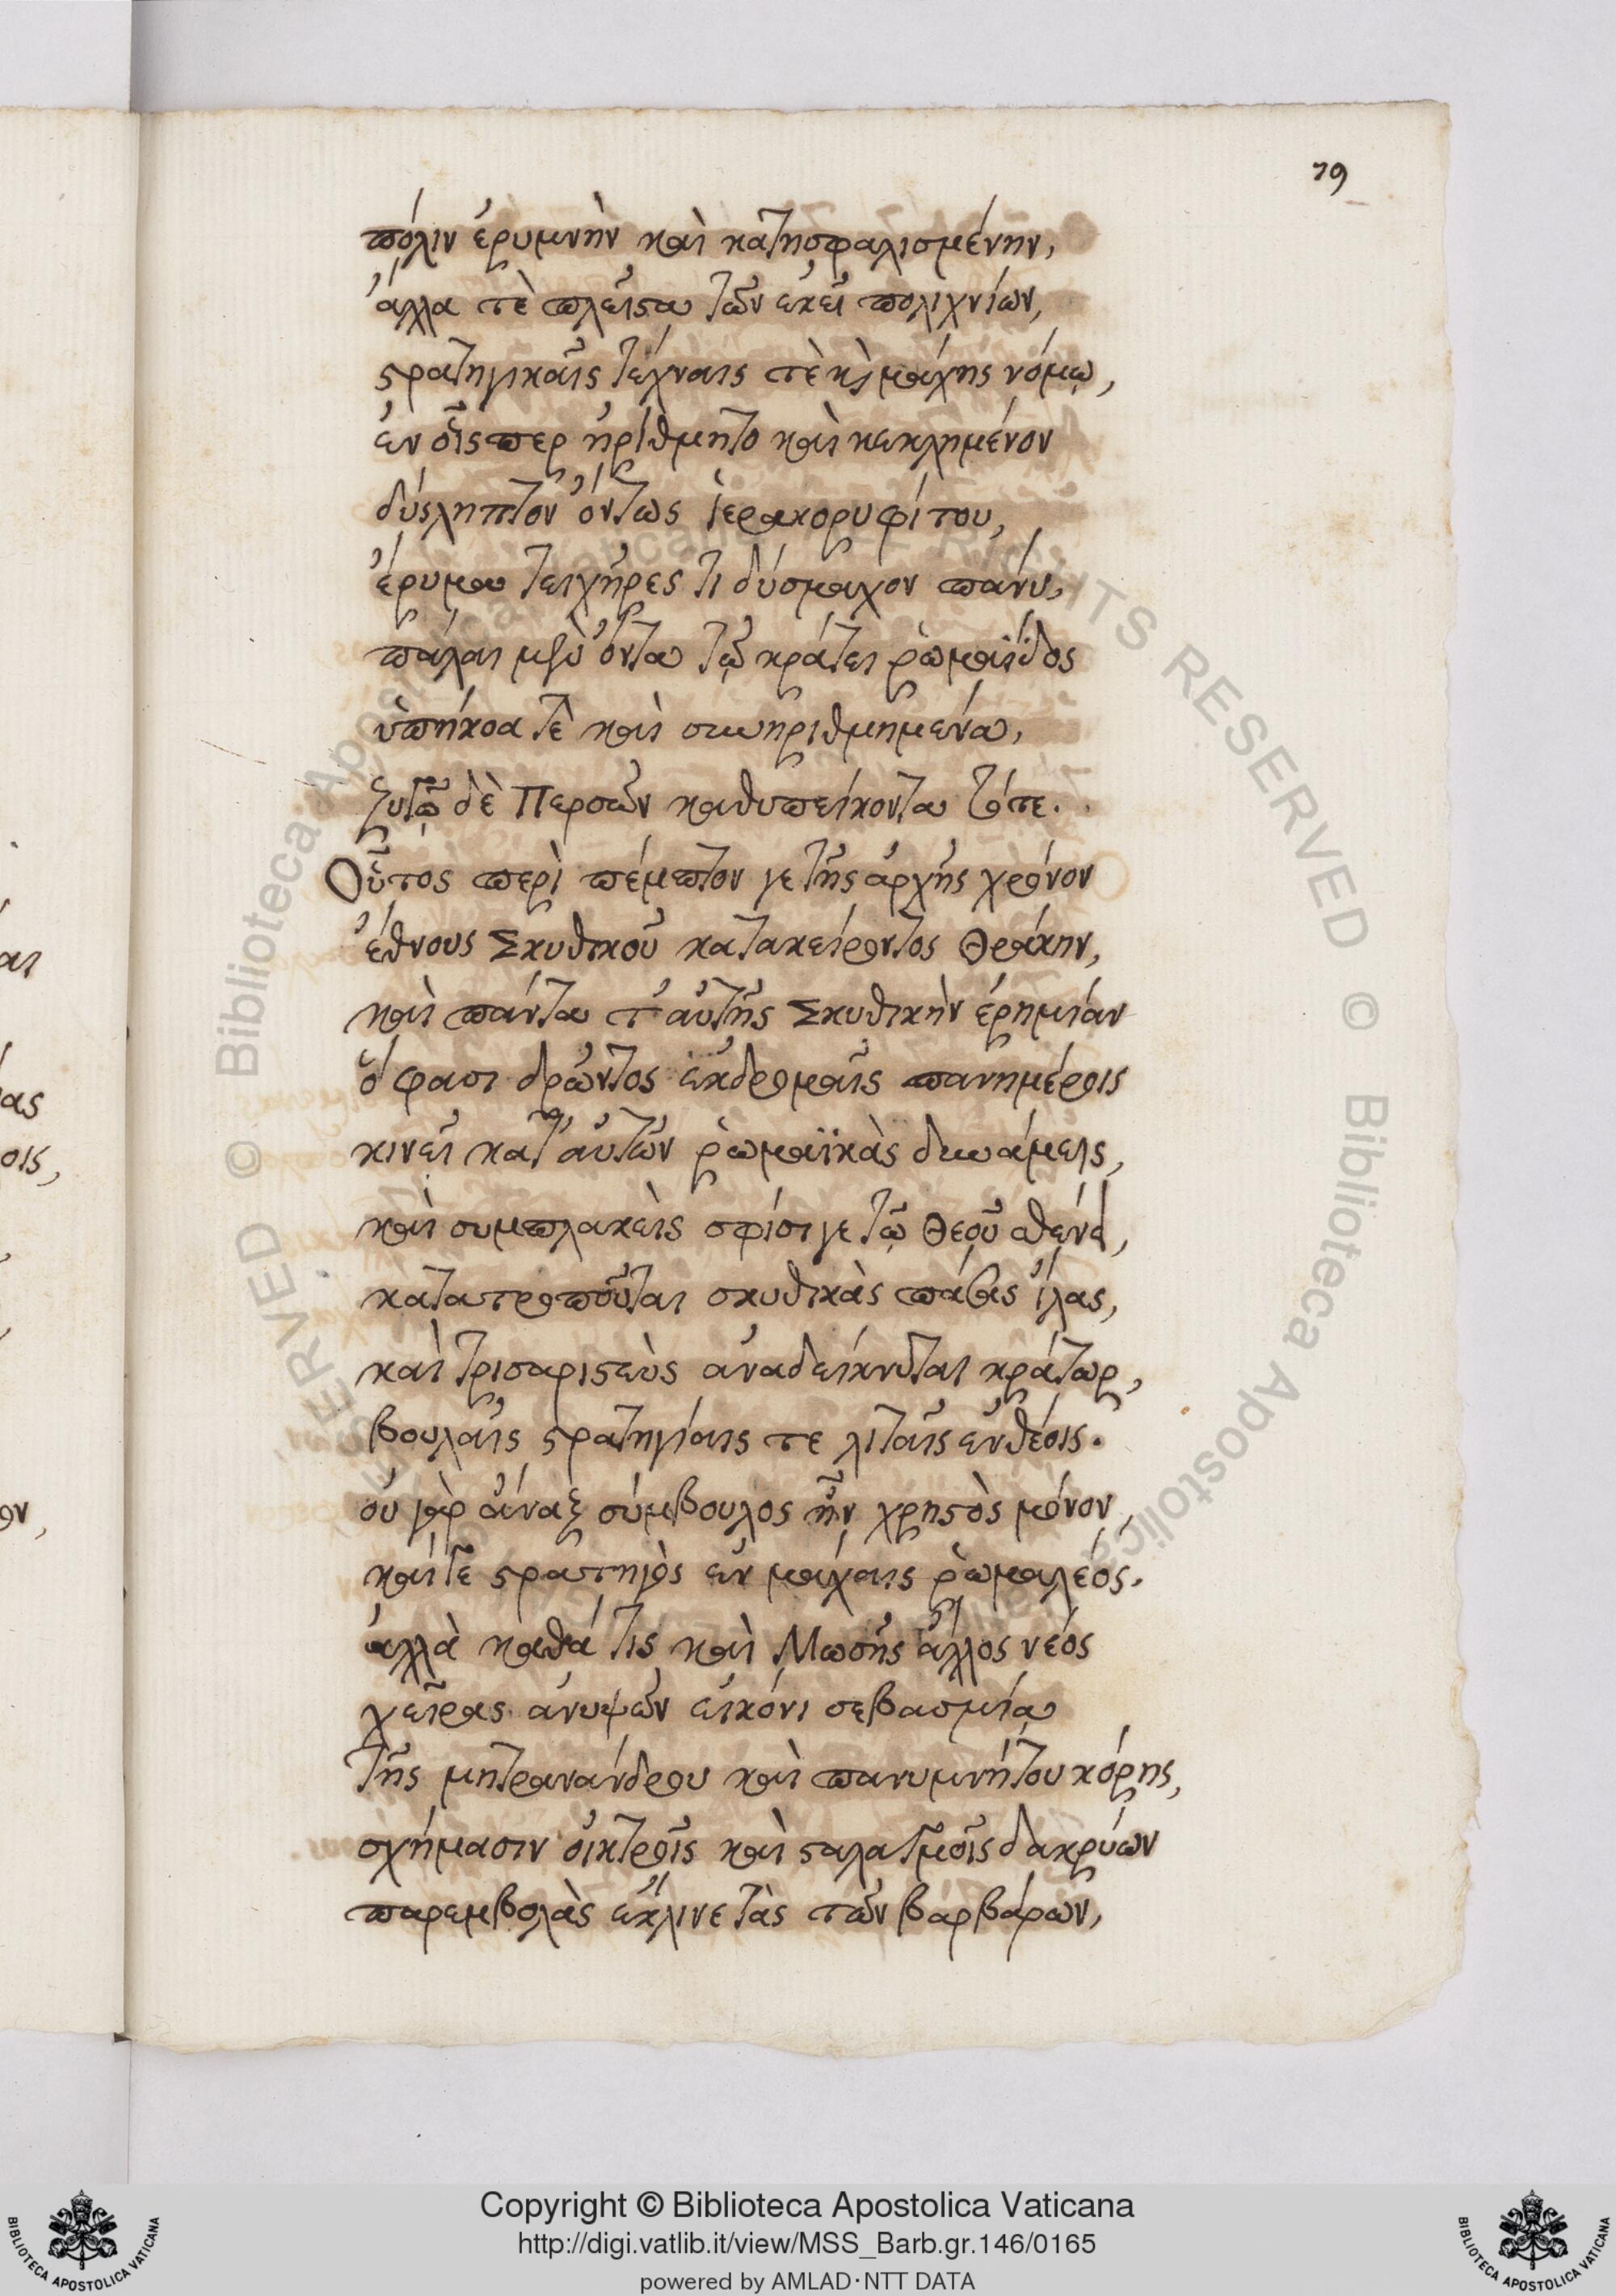 79
πόλιν ἐρυμνὴν καὶ κατησφαλισμένην,
ἄλλα τὲ πλεῖστα τῶν ἐκεῖ πολιχνίων,
στρατηγικαῖς τέχναις τὲ καὶ μάχης νόμῳ,
ἐν οἷς περ ἠρίθμητο καὶ κεκλημένον
δύσληπτον ὄντως ἱερακορυφίτου,
ἔρυμα τειχῆρες τι δύσμαχον πάνυ,
πάλαι μὲν ὄντα τῷ κράτει ῥωμαΐδος
ὑπήκοα τὲ καὶ συνηριθμημένα,
ζυγῷ δὲ Περσῶν καθυπείκοντα τότε.
Οὗτος περὶ πέμπτον γε τῆς ἀρχῆς χρόνον
ἔθνους Σκυθικοῦ κατακείροντος Θράκην,
καὶ πάντα τ' αὐτῆς Σκυθικὴν ἐρημίαν
ὅ φασι δρῶντος ἐκδρομαῖς πανημέροις
κινεῖ κατ' αὐτῶν ῥωμαϊκὰς δυνάμεις,
καὶ συμπλακεὶς σφίσι γε τῷ Θεοῦ σθένει,
κατατροποῦται σκυθικὰς πάσας ἴλας,
καὶ τρισαριστεὺς ἀναδείκνυται κράτωρ,
βουλαῖς στρατηγίαις τε λιταῖς ἐνθέοις.
οὐ γὰρ ἄναξ σύμβουλος ἦν χρηστὸς μόνον,
καί τε στρατηγὸς ἐν μάχαις ῥωμαλέος.
ἀλλὰ καθά τις καὶ Μωσῆς ἄλλος νέος
χεῖρας ἀνυψῶν εἰκόνι σεβασμίᾳ
τῆς μητρανάνδρου καὶ πανυμνήτου κόρης,
σχήμασιν οἰκτροῖς καὶ σταλαγμοῖς δακρύων
παρεμβολὰς ἔκλινε τὰς τῶν βαρβάρων,
Copyright © Biblioteca Apostolica Vaticana
http://digi.vatlib.it/view/MSS_Barb.gr.146/0165
powered by AMLAD·NTT DATA